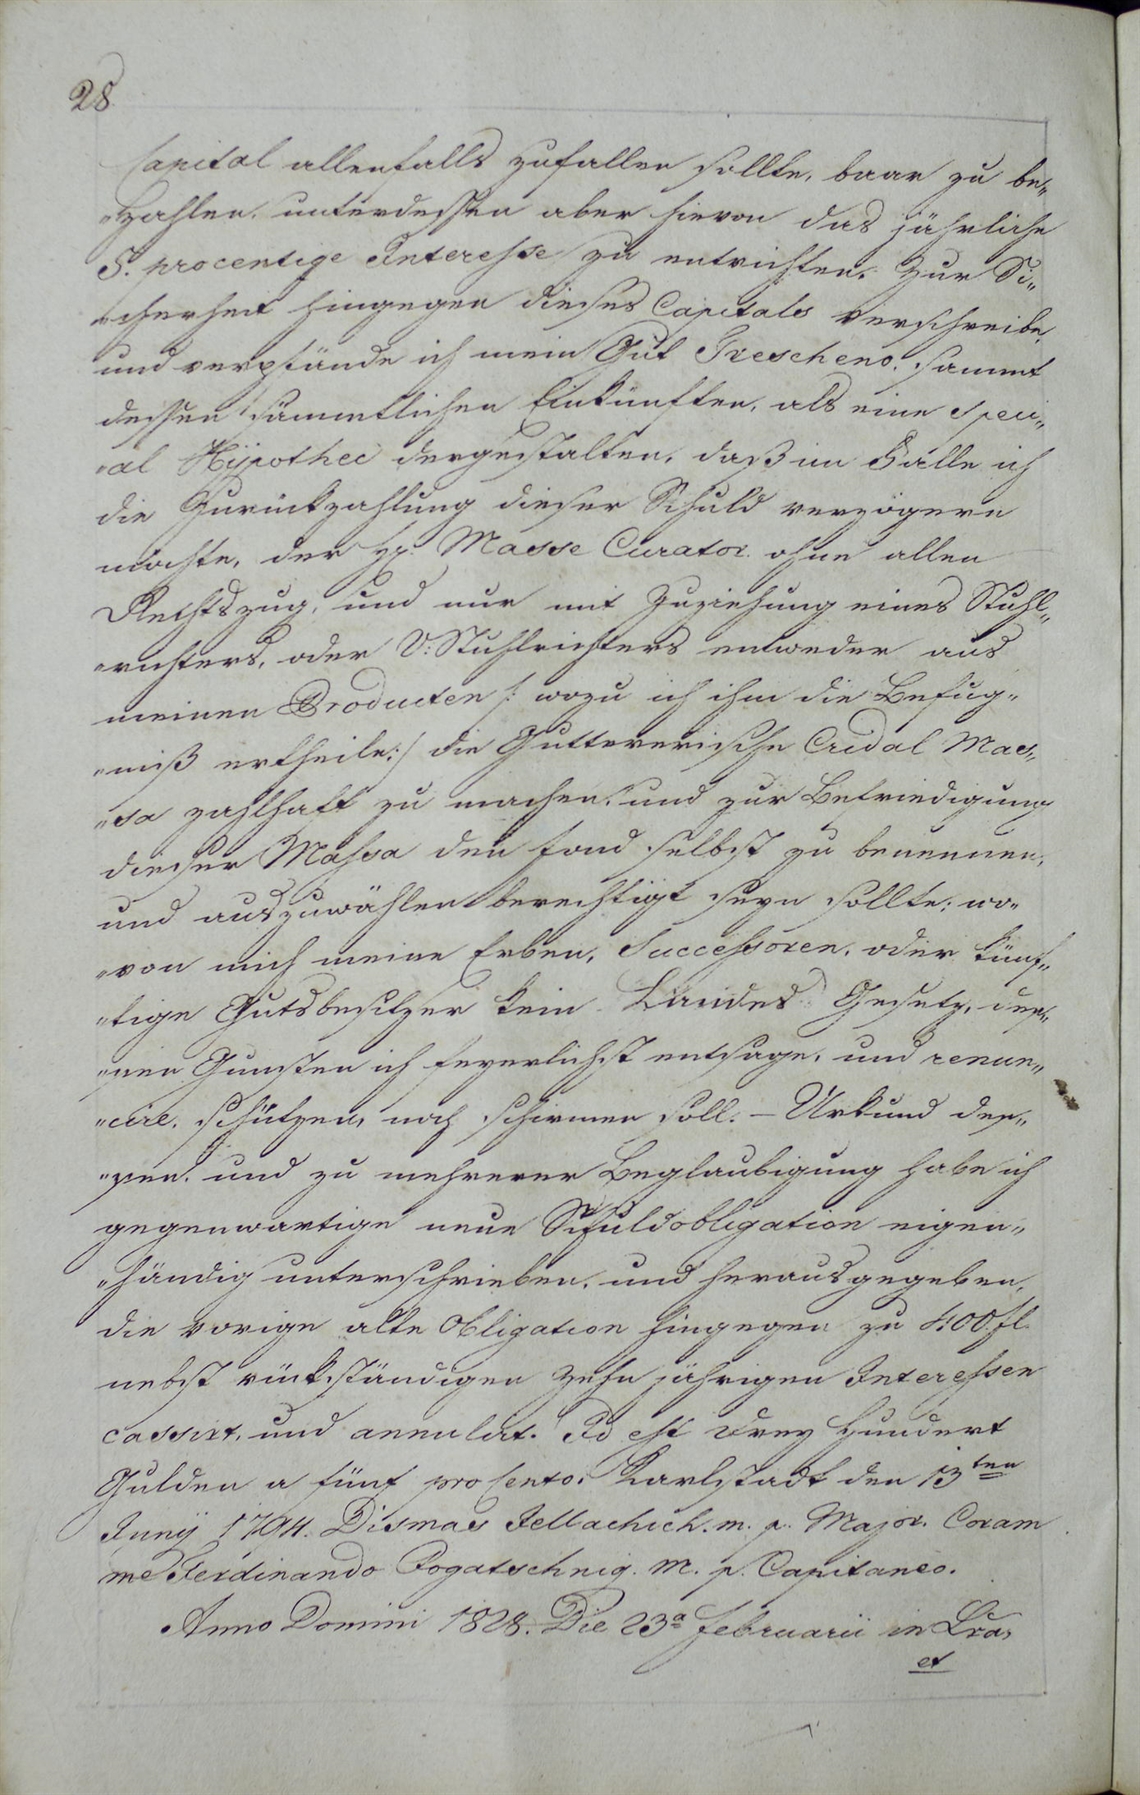 28.
Capital allenfalls zufallen sollte, baar zu be„
„zahlen, unterdessen aber hievon das jährliche
5. procentige Interesse zu entrichten. Zur Si„
„cherheit hingegen dieses Capitals verschreibe,
und verpfände ich mein Gut Trescheno, sammt
dessen sämmtlichen Einkünften, als eine speci„
„al Hÿpothec dergestalten, daß im Falle ich
die Zurückzahlung dieser Schuld verzögern
möchte, der H: Masse Curator ohne allen
Rechtszug, und nur mit Zuziehung eines Stuhl„
„richters, oder V: Stuhlrichters entweder aus
meinen Producten /: wozu ich ihm die Befug„
„niß ertheile :/ die Guttererische Cridal Mas„
„sa zahlhaft zu machen, und zur Befriedigung
dieser Massa den fond selbst zu benennen,
und auszuwählen berechtigt seyn sollte; wo„
„von mich meine Erben, Successoren, oder künf„
„tige Gutsbesitzer kein Landes Gesetz, des„
„sen Gunsten ich feyerlichst entsage, und renun„
„cire, schützen, noch schirmen soll. – Urkund des„
„sen, und zu mehrerer Beglaubigung habe ich
gegenwartige neue Schuldobligation eigen„
„händig unterschrieben, und herausgegeben,
die vorige alte Obligation hingegen zu 400 fl
nebst rückständigen zehn jährigen Interessen
cassirt, und annulat. Id est drey Hundert
Gulden a fünf pro Cento. Karlstadt den 13ten
Junÿ 1794. Dismas Jellachich. m. p. Major. Coram
me Ferdinando Pogatschnig. m. p. Capitaneo.
Anno Domini 1828. Die 23a Februarii in
et